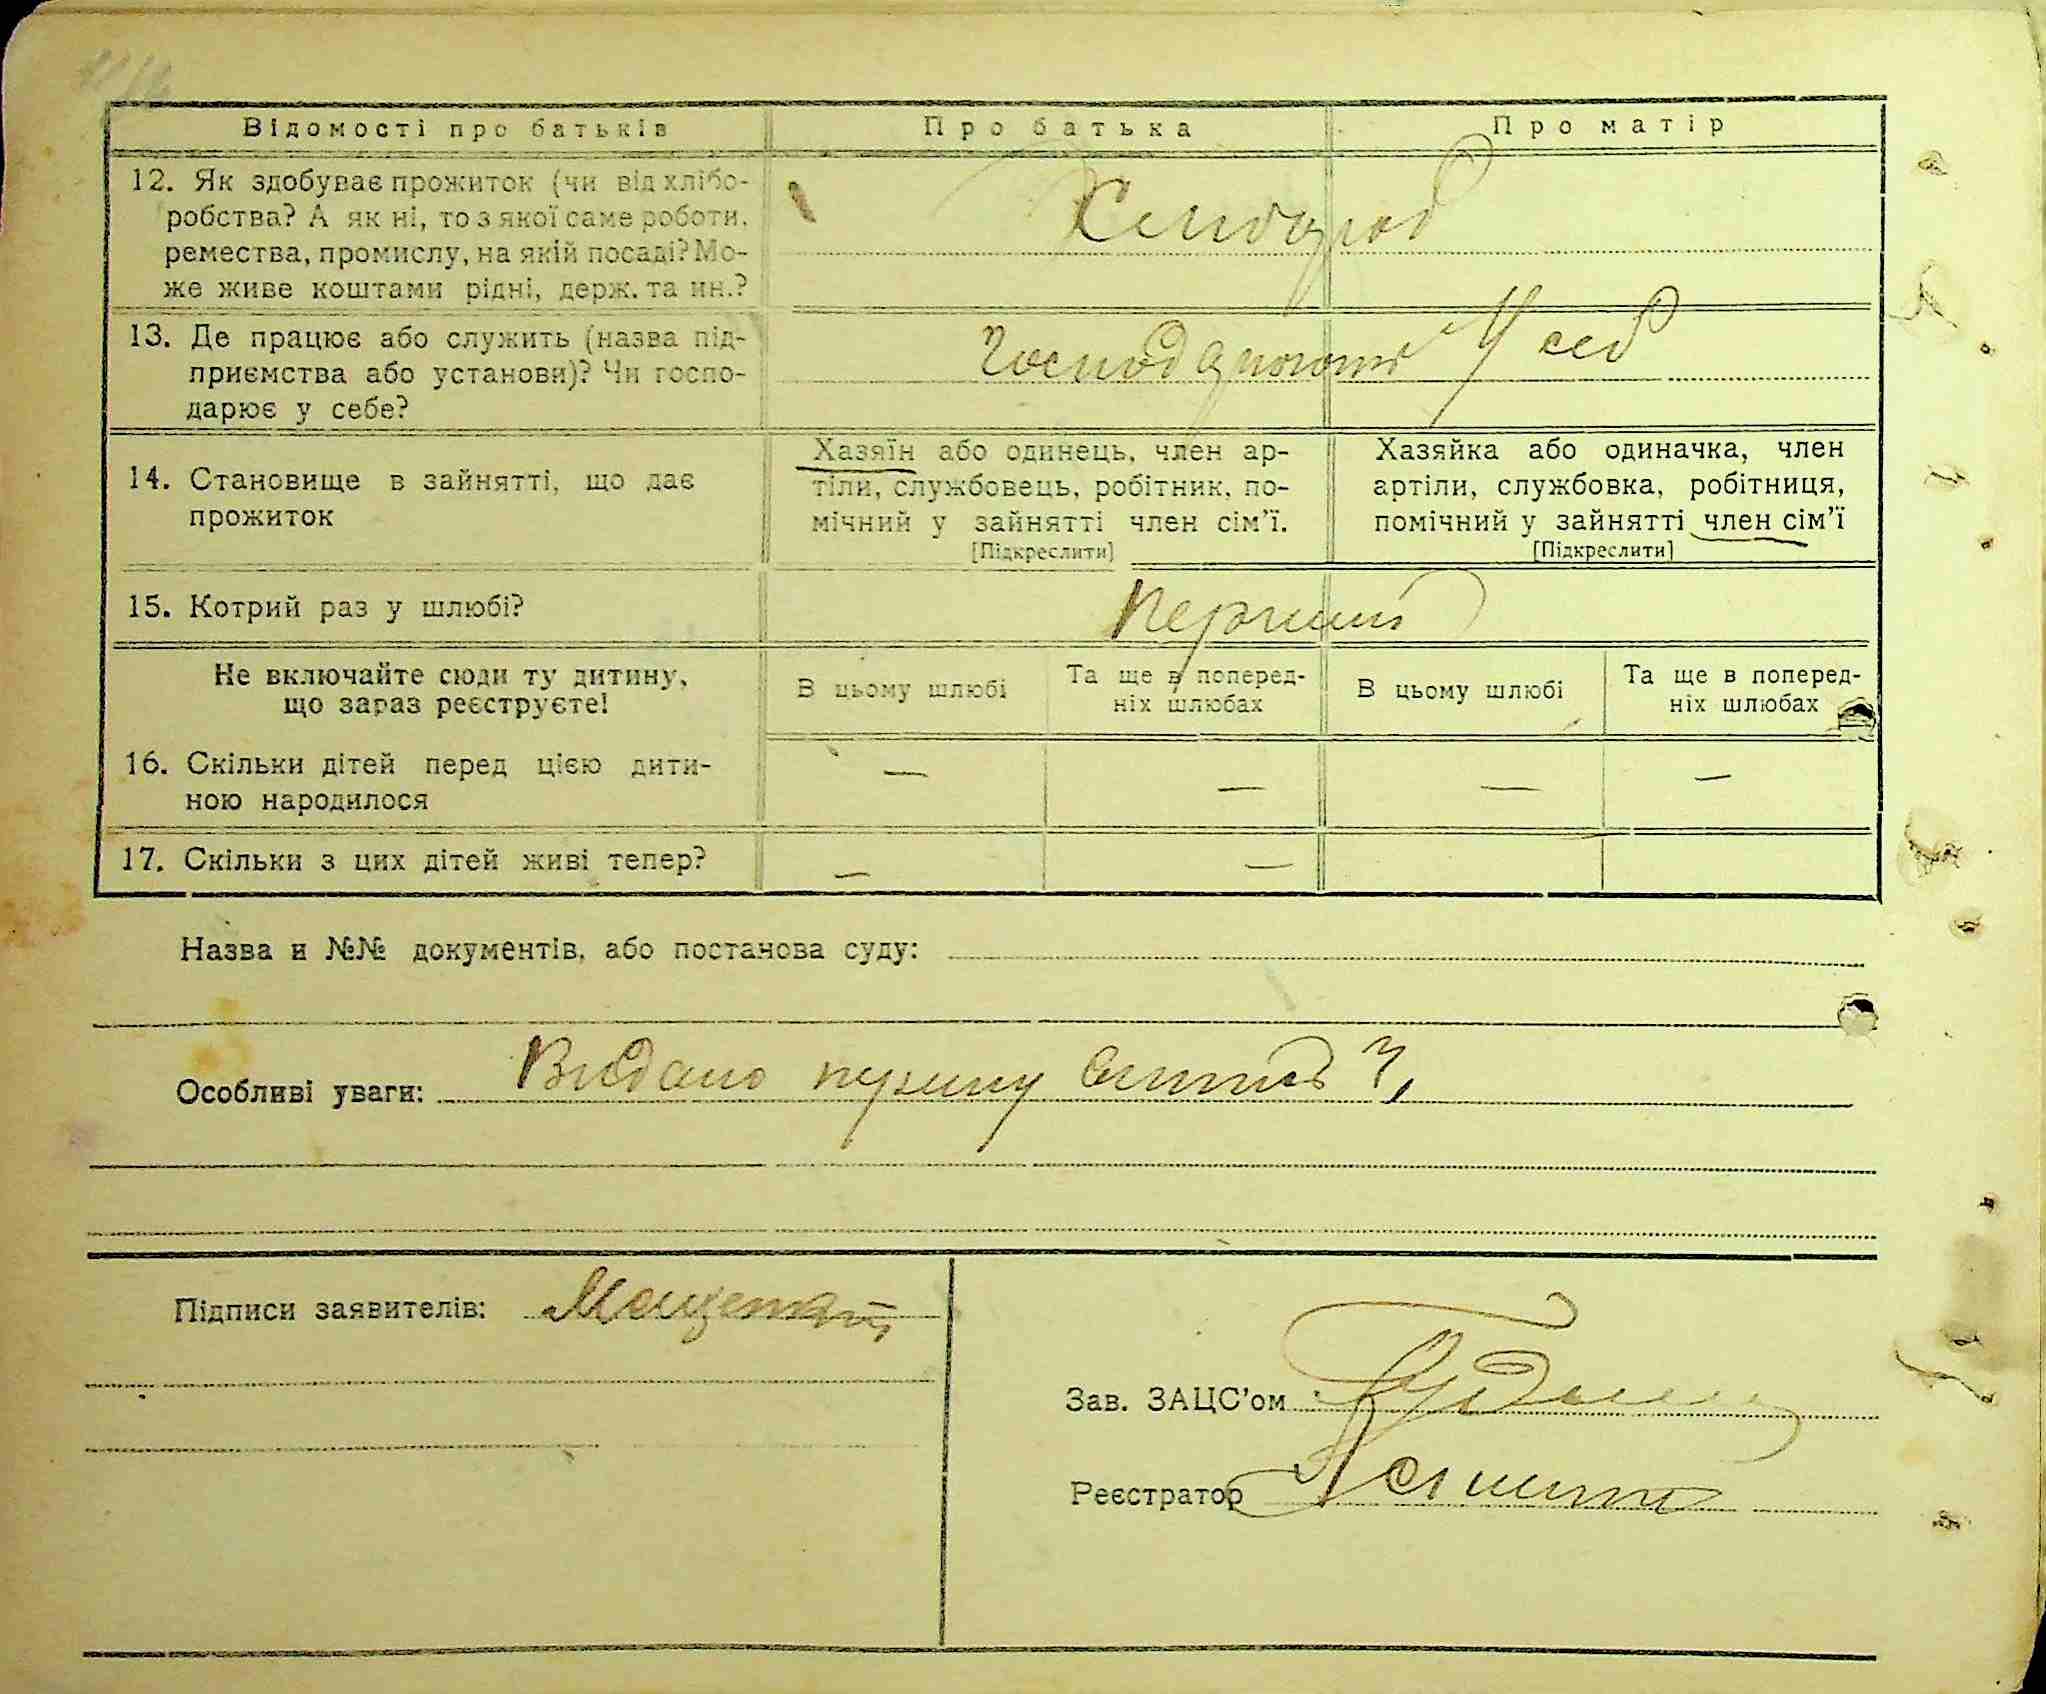 Відомості про батьків
Про батька
Про матір
12. Як здобуває прожиток (чи від хлібо-
робства? А як ні, то з якої саме роботи,
ремества, промислу, на якій посаді? Мо-
же живе коштами рідні, держ. та ин.?
Хлибороб
13. Де працює або служить (назва під-
приємства або установи)? Чи госпо-
дарює у себе?
У себ
14. Становище в зайнятті, що дає
прожиток
Хазяїн або одинець, член ар-
тіли, службовець, робітник, по-
мічний у зайнятті член сім'ї.
[Підкреслити]
Хазяйка або одиначка, член
артіли, службовка, робітниця,
помічний у зайнятті член сім'ї
[Підкреслити]
15. Котрий раз у шлюбі?
Перший
Не включайте сюди ту дитину,
що зараз реєструєте!
В цьому шлюбі
Та ще в поперед-
ніх шлюбах
В цьому шлюбі
Та ще в поперед-
ніх шлюбах
16. Скільки дітей перед цією дити-
ною народилося
— — — —
17. Скільки з цих дітей живі тепер?
— —
Назва и №№ документів, або постанова суду:
Особливі уваги: Видано
Підписи заявителів:
Зав. ЗАЦС'ом
Реєстратор